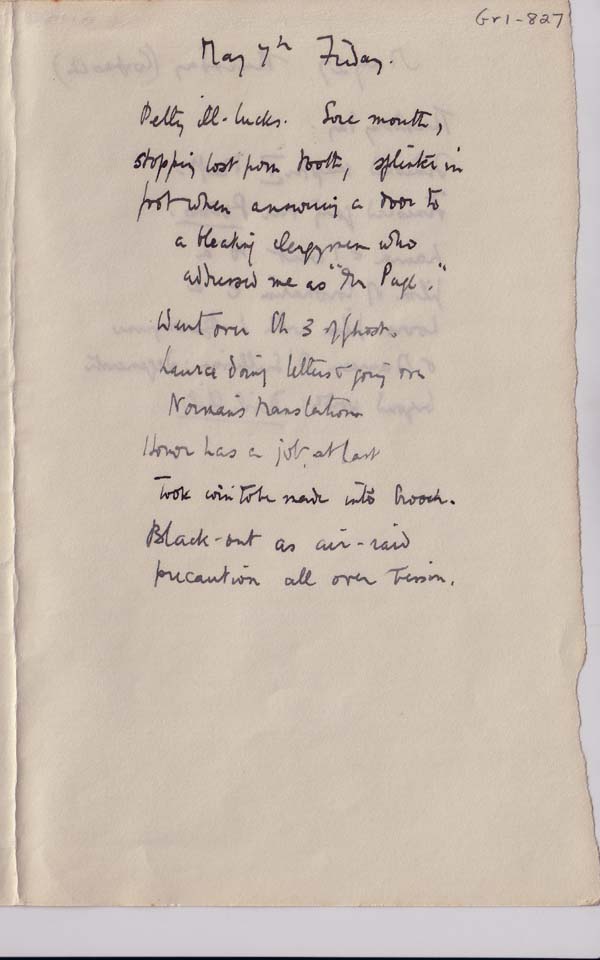 Gr1-827
May 7th Friday.
Petty ill-lucks. Sore mouth,
stopping lost from tooth, splinter in
foot when answering a door to
a bleating clergyman who
addressed me as "Mr Page."
Went over Ch 3 of Ghost.
Laura doing letters & going over
Norman's translation
Honor has a job at last
Took coin to be made into brooch.
Black-out as air-raid
precaution all over